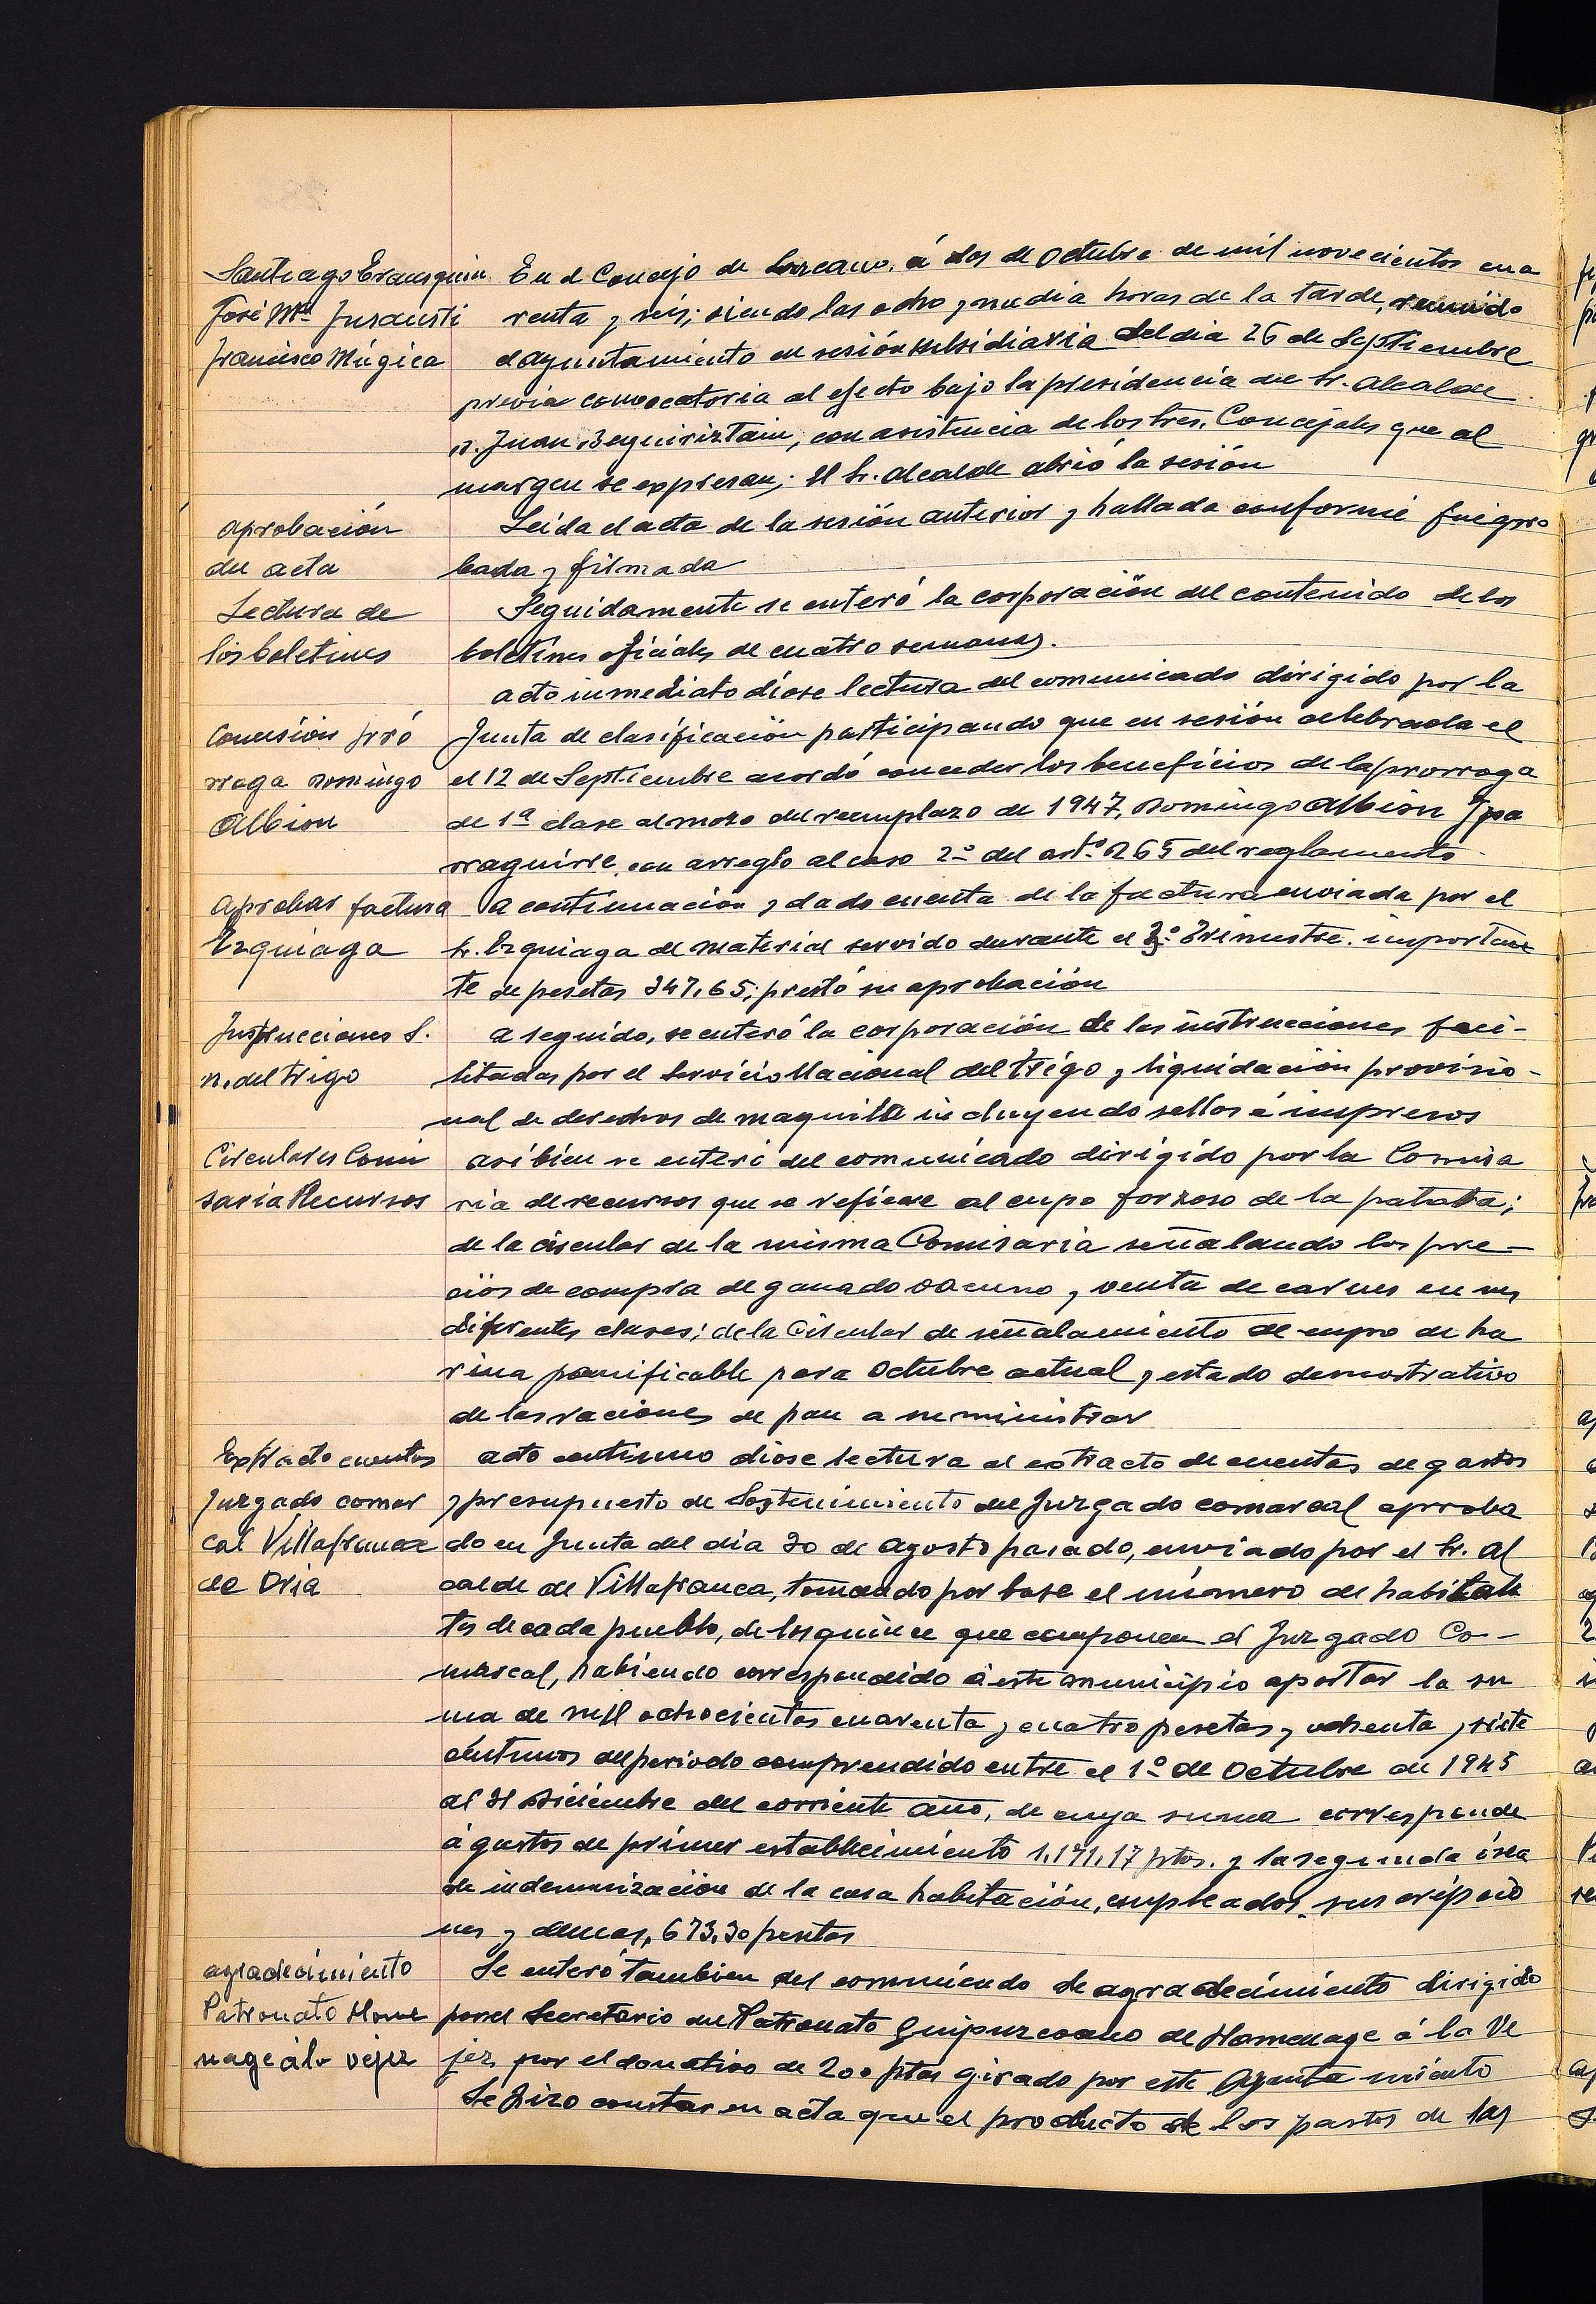 Santiago Erausquin
José Mª Insausti
Francisco Múgica
En el Concejo de Lazcano, á dos de Octubre de mil novecientos cua
renta y seis; siendo las ocho y media horas de la tarde, reunido
el ayuntamiento en sesión subsidiaria del dia 26 de Septiembre
previa convocatoria al efecto bajo la presidencia del Sr. Alcalde
D. Juan Beguiriztain, con asistencia de los tres Concejales que al
margen se expresan; El Sr. Alcalde abrió la sesión
aprobación
del acta
Leida el acta de la sesión anterior y hallada conforme fué apro
bada y firmada
Lectura de
los boletines
Seguidamente se enteró la corporación del contenido de los
boletines oficiales de cuatro semanas.
acto inmediato dióse lectura del comunicado dirigido por la
Concesión pró
rroga Domingo
Albion
Junta de clasificación participando que en sesión celebrada el
el 12 de Septiembre acordó conceder los beneficios de la prorroga
de 1ª clase al mozo del reemplazo de 1947, Domingo Albion Ypa
rraguirre, con arreglo al caso 2º del artº 265 del reglamento.
Aprobar factura
Ezquiaga
a continuación y dado cuenta de la factura enviada por el
Sr. Ezquiaga de material servido durante el 3º Trimestre. importan
te de pesetas 347,65; prestó su aprobación
Instrucciones S.
N. del Trigo
a seguido, se enteró la corporación de las instrucciones faci-
litadas por el Servicio Nacional del Trigo y liquidación provisio-
nal de derechos de maquila incluyendo sellos é impresos
Circulares Comi
saria Recursos
asi bien se enteró del comunicado dirigido por la Comisa
ria de recursos que se refiere al cupo forzoso de la patata;
de la circular de la misma Comisaria señalando los pre-
cios de compra de ganado vacuno y venta de carnes en sus
diferentes clases; de la Circular de señalamiento de cupo de ha
rina panificable para Octubre actual y estado demostrativo
de las raciones de pan a suministrar
Extracto cuentas
Juzgado comar
cal Villafranca
de Oria
acto continuo dióse lectura al extracto de cuentas de gastos
y presupuesto de Sostenimiento del Juzgado comarcal aproba
do en Junta del dia 30 de Agosto pasado, enviado por el Sr. Al
calde de Villafranca, tomando por base el número de habitan
tes de cada pueblo, de los quince que componen el Juzgado Co-
marcal, habiendo correspondido á este municipio aportar la su
ma de mil ochocientas cuarenta y cuatro pesetas y ochenta y siete
céntimos del periodo comprendido entre el 1º de Octubre de 1945
al 31 Diciembre del corriente año, de cuya suma corresponde
á gastos de primer establecimiento 1.171,17 ptas. y la segunda ó sea
de indemnización de la casa habitación, empleados,
nes y demas, 673,30 pesetas
agradecimiento
Patronato Home
nage á la vejez
Se enteró tambien del comunicado de agradecimiento dirigido
por el Secretario del Patronato Guipuzcoano de Homenage á la Ve
jez por el donativo de 200 ptas girado por este Ayuntamiento
Se hizo constar en acta que el producto de los pastos de las